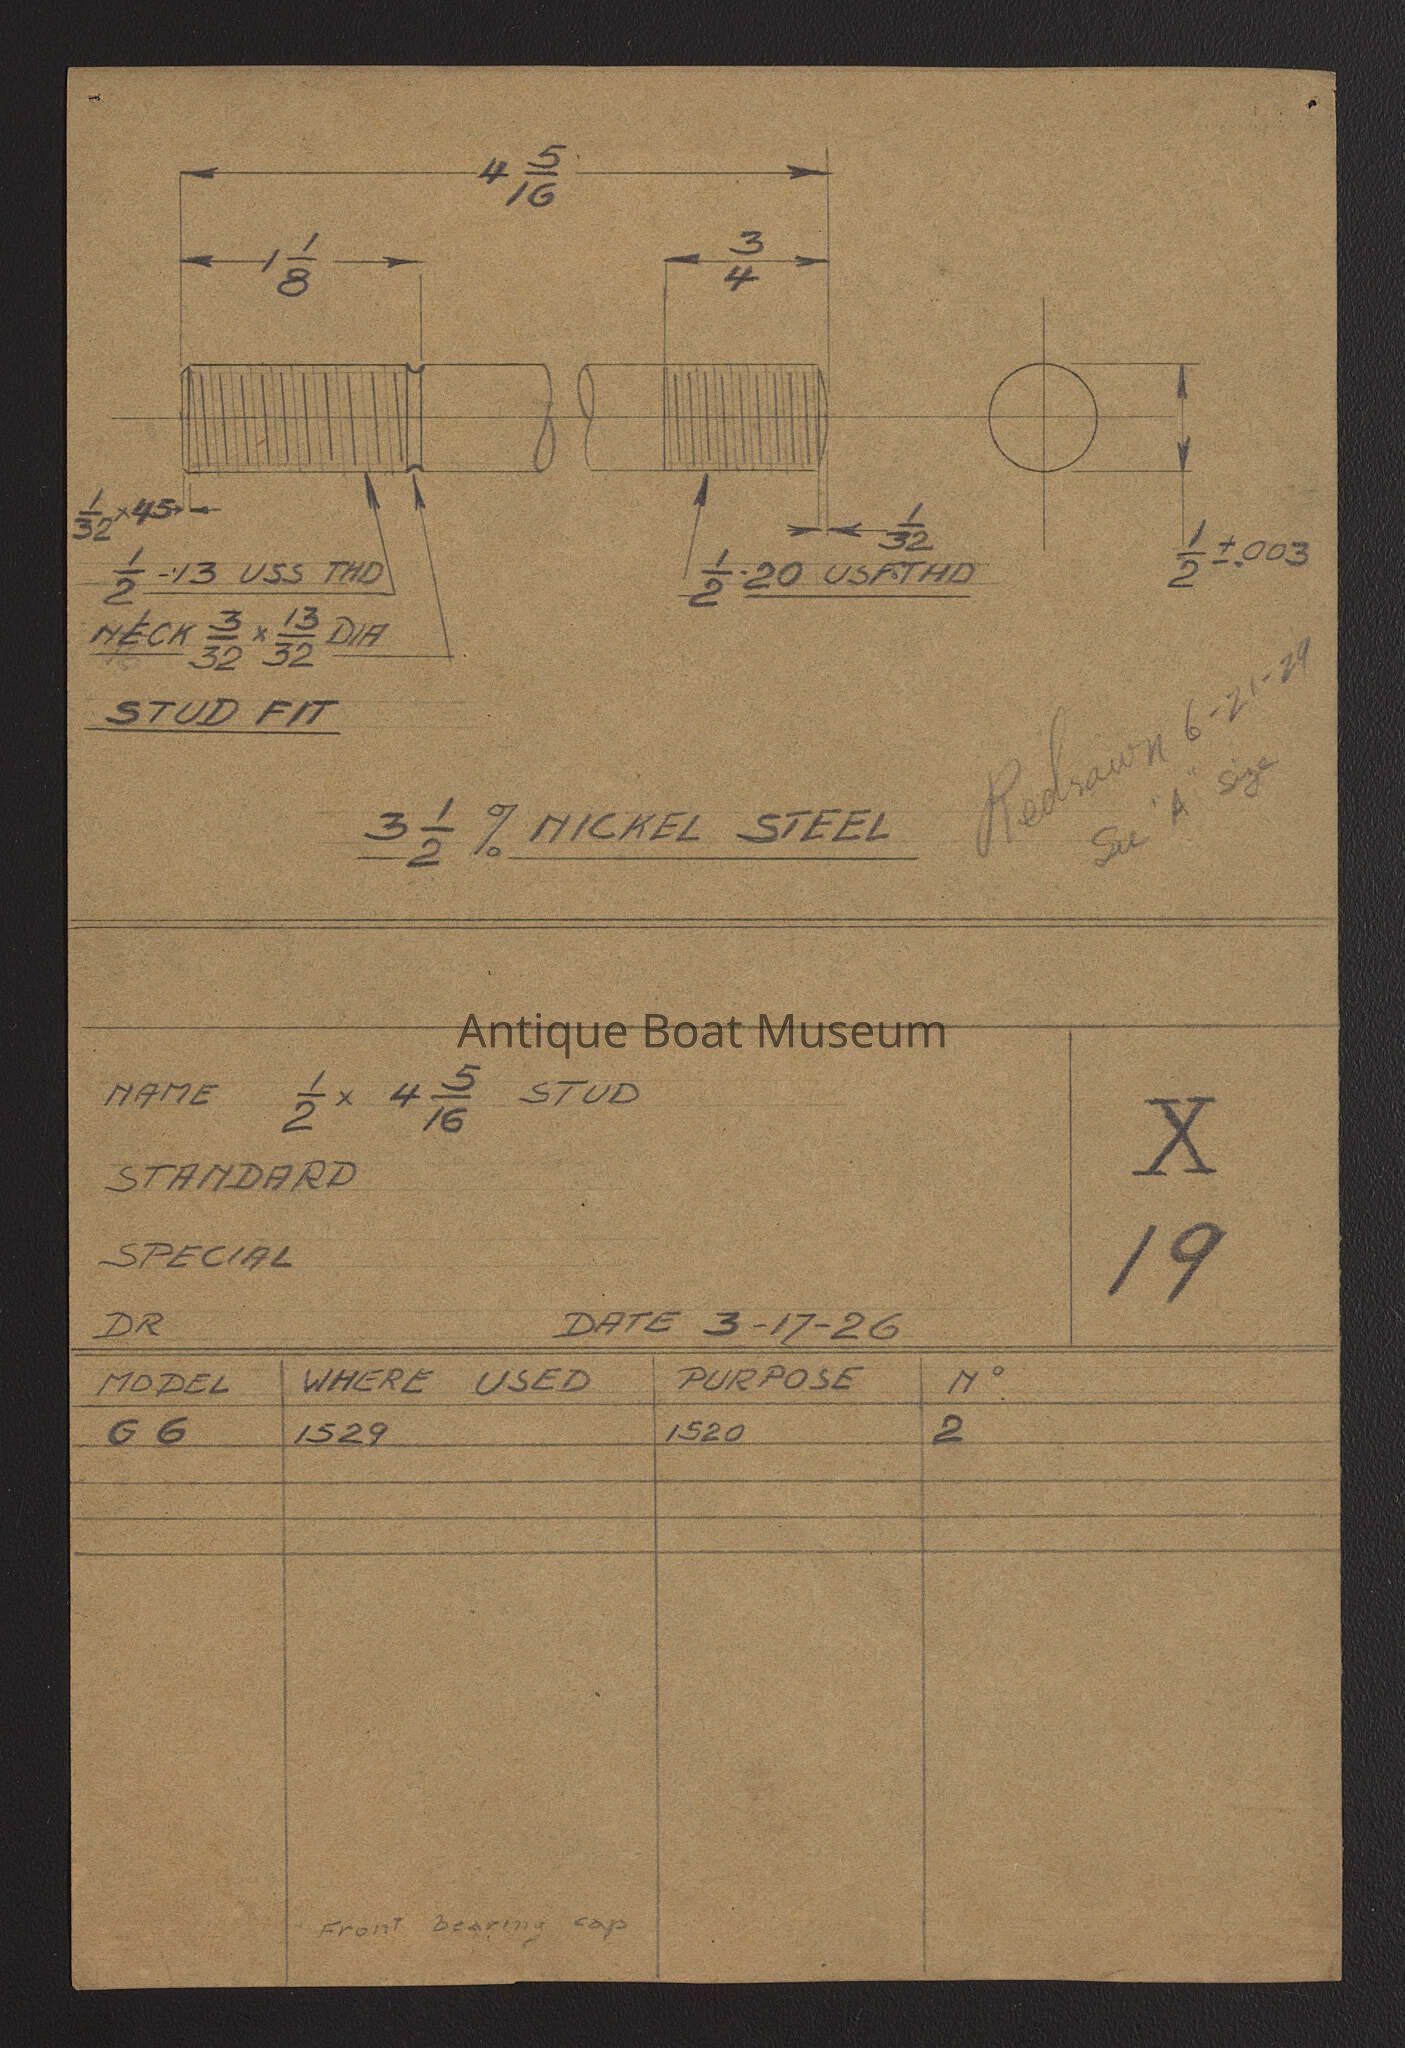 4 5/16
1 1/8
3/4
1/32 × 45
1/32
1/2 ±.003
1/2 - 13 USS THD
1/2 - 20 USF THD
NECK 3/32 × 13/32 DIA
STUD FIT
Redrawn 6-21-29
See "A" size
3 1/2 % NICKEL STEEL
Antique Boat Museum
NAME 1/2 × 4 5/16 STUD
X
19
STANDARD
SPECIAL
DR DATE 3-17-26
MODEL WHERE USED PURPOSE No
G 6 1529 1520 2
Front bearing cap